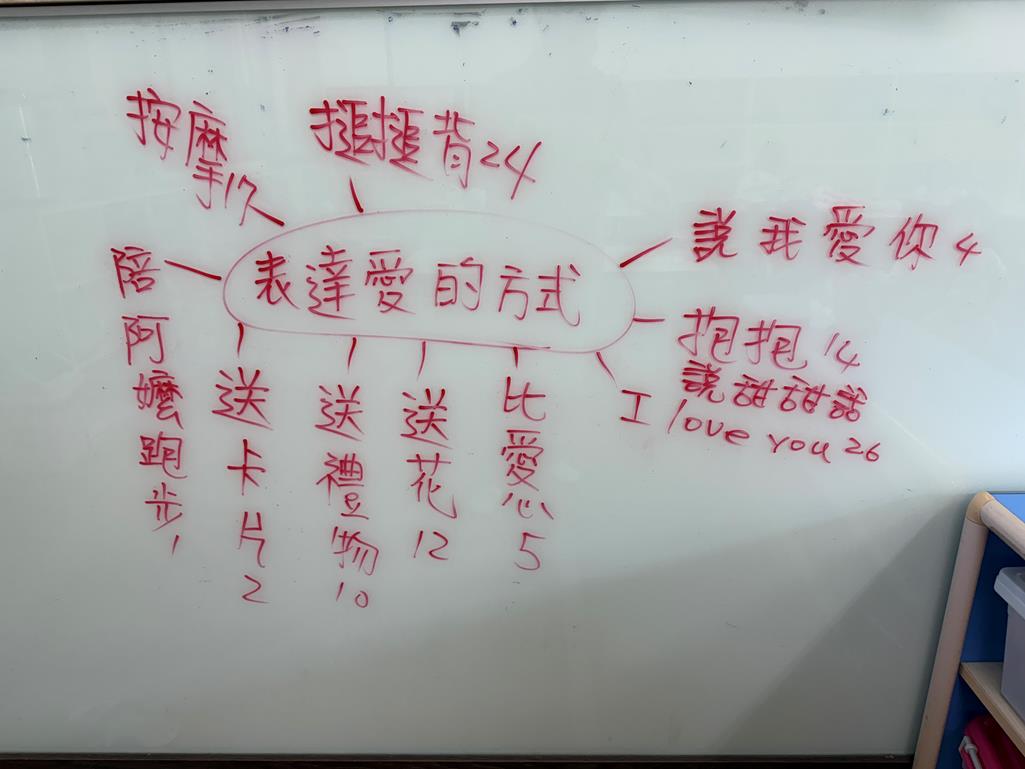 表達愛的方式
按摩17
搥搥背24
說我愛你4
抱抱14
說甜甜話
I love you 26
比愛心5
送花12
送禮物10
送卡片2
陪阿嬤跑步1